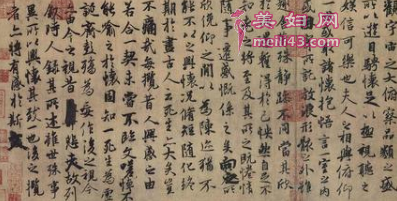 觀宇宙之大俯察品類之盛
所以遊目騁懷足以極視聽之
娛信可樂也夫人之相與俯仰
一世或取諸懷抱悟言一室之內
或因寄所託放浪形骸之外雖
趣舍萬殊靜躁不同當其欣
於所遇蹔得於己怏然自足不
知老之將至及其所之既惓情
隨事遷感慨係之矣向之所
欣俛仰之閒以為陳迹猶不
能不以之興懷況脩短隨化終
期於盡古人云死生亦大矣豈
不痛哉每攬昔人興感之由
若合一契未嘗不臨文嗟悼不
能喻之於懷固知一死生為虛
誕齊彭殤為妄作後之視今
亦由今之視昔悲夫故列
敘時人錄其所述雖世殊事
異所以興懷其致一也後之攬
者亦將有感於斯文
美妇网
meili43.com